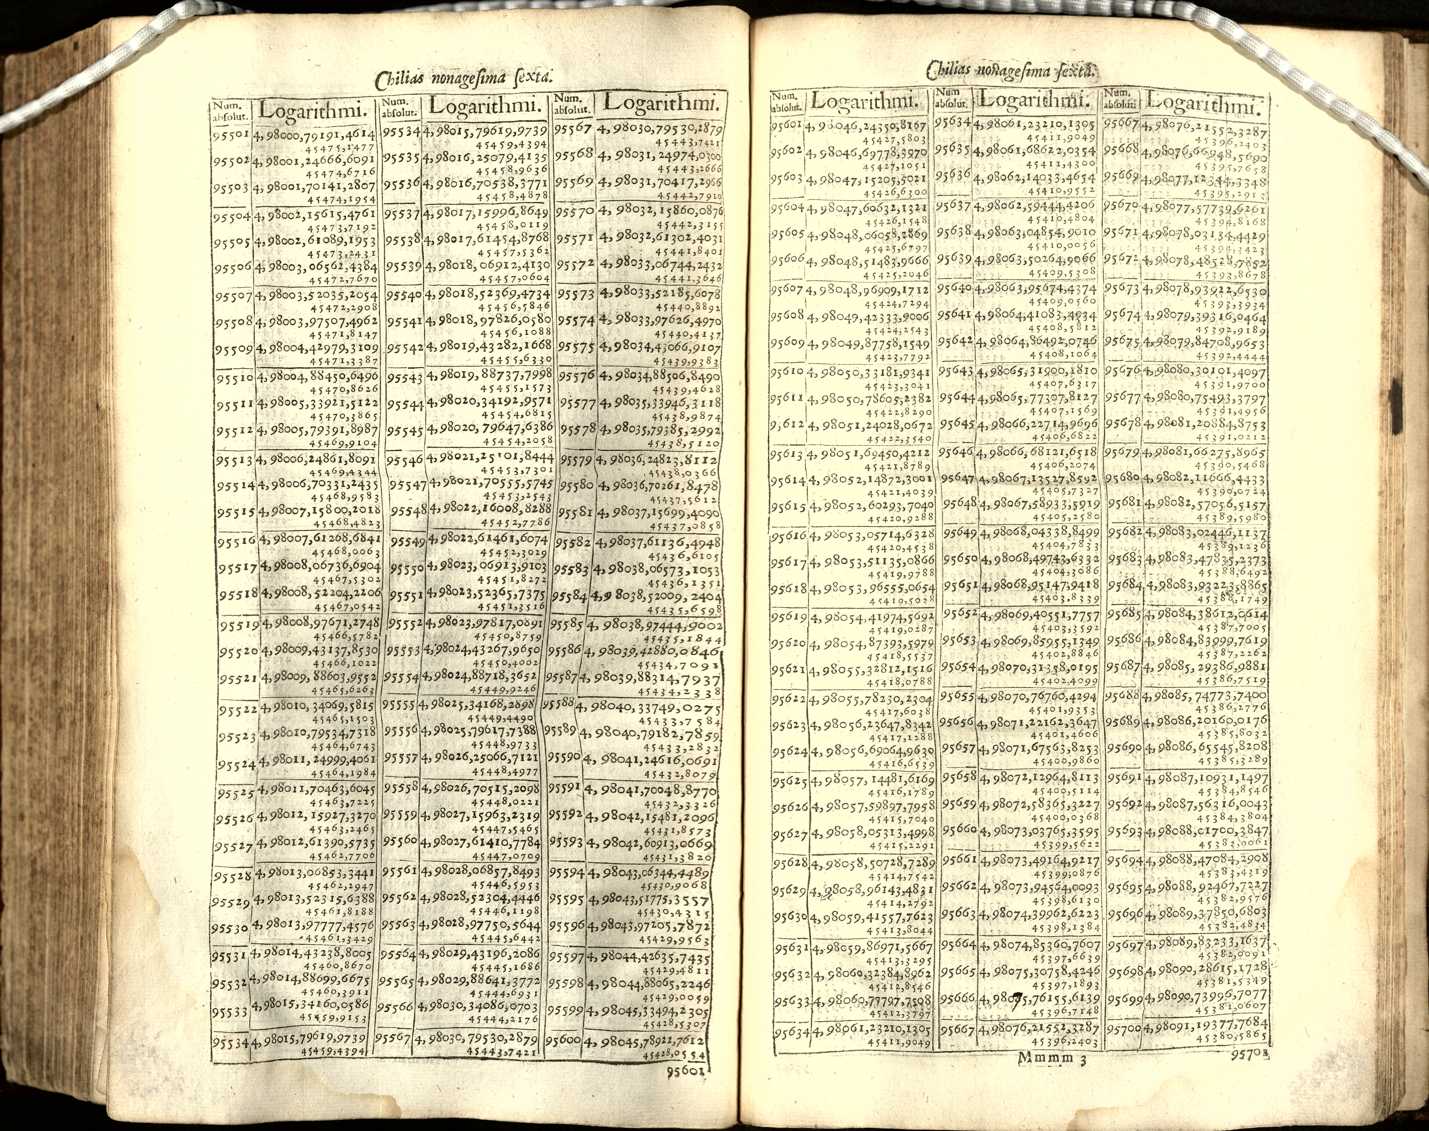 Chilias nonagesima sexta.
Num. absolut. Logarithmi.
95501 4,98000,79191,4614
45475,1477
95502 4,98001,24666,6091
45474,6716
95503 4,98001,70141,2807
45474,1954
95504 4,98002,15615,4761
45473,7192
95505 4,98002,61089,1953
45473,2431
95506 4,98003,06562,4384
45472,7670
95507 4,98003,52035,2054
45472,2908
95508 4,98003,97507,4962
45471,8147
95509 4,98004,42979,3109
45471,3387
95510 4,98004,88450,6496
45470,8626
95511 4,98005,33921,5122
45470,3865
95512 4,98005,79391,8987
45469,9104
95513 4,98006,24861,8091
45469,4344
95514 4,98006,70331,2435
45468,9583
95515 4,98007,15800,2018
45468,4823
95516 4,98007,61268,6841
45468,0063
95517 4,98008,06736,6904
45467,5302
95518 4,98008,52204,2206
45467,0542
95519 4,98008,97671,2748
45466,5782
95520 4,98009,43137,8530
45466,1022
95521 4,98009,88603,9552
45465,6263
95522 4,98010,34069,5815
45465,1503
95523 4,98010,79534,7318
45464,6743
95524 4,98011,24999,4061
45464,1984
95525 4,98011,70463,6045
45463,7225
95526 4,98012,15927,3270
45463,2465
95527 4,98012,61390,5735
45462,7706
95528 4,98013,06853,3441
45462,2947
95529 4,98013,52315,6388
45461,8188
95530 4,98013,97777,4576
45461,3429
95531 4,98014,43238,8005
45460,8670
95532 4,98014,88699,6675
45460,3911
95533 4,98015,34160,0586
45459,9153
95534 4,98015,79619,9739
45459,4394
Num. absolut. Logarithmi.
95534 4,98015,79619,9739
45459,4394
95535 4,98016,25079,4135
45458,9636
95536 4,98016,70538,3771
45458,4878
95537 4,98017,15996,8649
45458,0119
95538 4,98017,61454,8768
45457,5362
95539 4,98018,06912,4130
45457,0604
95540 4,98018,52369,4734
45456,5846
95541 4,98018,97826,0580
45456,1088
95542 4,98019,43282,1668
45455,6330
95543 4,98019,88737,7998
45455,1573
95544 4,98020,34192,9571
45454,6815
95545 4,98020,79647,6386
45454,2058
95546 4,98021,25101,8444
45453,7301
95547 4,98021,70555,5745
45453,2543
95548 4,98022,16008,8288
45452,7786
95549 4,98022,61461,6074
45452,3029
95550 4,98023,06913,9103
45451,8272
95551 4,98023,52365,7375
45451,3516
95552 4,98023,97817,0891
45450,8759
95553 4,98024,43267,9650
45450,4002
95554 4,98024,88718,3652
45449,9246
95555 4,98025,34168,2898
45449,4490
95556 4,98025,79617,7388
45448,9733
95557 4,98026,25066,7121
45448,4977
95558 4,98026,70515,2098
45448,0221
95559 4,98027,15963,2319
45447,5465
95560 4,98027,61410,7784
45447,0709
95561 4,98028,06857,8493
45446,5953
95562 4,98028,52304,4446
45446,1198
95563 4,98028,97750,5644
45445,6442
95564 4,98029,43196,2086
45445,1686
95565 4,98029,88641,3772
45444,6931
95566 4,98030,34086,0703
45444,2176
95567 4,98030,79530,2879
45443,7421
Num. absolut. Logarithmi.
95567 4,98030,79530,2879
45443,7421
95568 4,98031,24974,0300
45443,2666
95569 4,98031,70417,2966
45442,7910
95570 4,98032,15860,0876
45442,3155
95571 4,98032,61302,4031
45441,8401
95572 4,98033,06744,2432
45441,3646
95573 4,98033,52185,6078
45440,8892
95574 4,98033,97626,4970
45440,4137
95575 4,98034,43066,9107
45439,9383
95576 4,98034,88506,8490
45439,4628
95577 4,98035,33946,3118
45438,9874
95578 4,98035,79385,2992
45438,5120
95579 4,98036,24823,8112
45438,0366
95580 4,98036,70261,8478
45437,5612
95581 4,98037,15699,4090
45437,0858
95582 4,98037,61136,4948
45436,6105
95583 4,98038,06573,1053
45436,1351
95584 4,98038,52009,2404
45435,6598
95585 4,98038,97444,9002
45435,1844
95586 4,98039,42880,0846
45434,7091
95587 4,98039,88314,7937
45434,2338
95588 4,98040,33749,0275
45433,7584
95589 4,98040,79182,7859
45433,2832
95590 4,98041,24616,0691
45432,8079
95591 4,98041,70048,8770
45432,3326
95592 4,98042,15481,2096
45431,8573
95593 4,98042,60913,0669
45431,3820
95594 4,98043,06344,4489
45430,9068
95595 4,98043,51775,3557
45430,4315
95596 4,98043,97205,7872
45429,9563
95597 4,98044,42635,7435
45429,4811
95598 4,98044,88065,2246
45429,0059
95599 4,98045,33494,2305
45428,5307
95600 4,98045,78922,7612
45428,0554
95601
Chilias nonagesima sexta.
Num. absolut. Logarithmi.
95601 4,98046,24350,8167
45427,5803
95602 4,98046,69778,3970
45427,1051
95603 4,98047,15205,5021
45426,6300
95604 4,98047,60632,1321
45426,1548
95605 4,98048,06058,2869
45425,6797
95606 4,98048,51483,9666
45425,2046
95607 4,98048,96909,1712
45424,7294
95608 4,98049,42333,9006
45424,2543
95609 4,98049,87758,1549
45423,7792
95610 4,98050,33181,9341
45423,3041
95611 4,98050,78605,2382
45422,8290
95612 4,98051,24028,0672
45422,3540
95613 4,98051,69450,4212
45421,8789
95614 4,98052,14872,3001
45421,4039
95615 4,98052,60293,7040
45420,9288
95616 4,98053,05714,6328
45420,4538
95617 4,98053,51135,0866
45419,9788
95618 4,98053,96555,0654
45419,5038
95619 4,98054,41974,5692
45419,0287
95620 4,98054,87393,5979
45418,5537
95621 4,98055,32812,1516
45418,0788
95622 4,98055,78230,2304
45417,6038
95623 4,98056,23647,8342
45417,1288
95624 4,98056,69064,9630
45416,6539
95625 4,98057,14481,6169
45416,1789
95626 4,98057,59897,7958
45415,7040
95627 4,98058,05313,4998
45415,2291
95628 4,98058,50728,7289
45414,7542
95629 4,98058,96143,4831
45414,2792
95630 4,98059,41557,7623
45413,8044
95631 4,98059,86971,5667
45413,3295
95632 4,98060,32384,8962
45412,8546
95633 4,98060,77797,7508
45412,3797
95634 4,98061,23210,1305
45411,9049
Num. absolut. Logarithmi.
95634 4,98061,23210,1305
45411,9049
95635 4,98061,68622,0354
45411,4300
95636 4,98062,14033,4654
45410,9552
95637 4,98062,59444,4206
45410,4804
95638 4,98063,04854,9010
45410,0056
95639 4,98063,50264,9066
45409,5308
95640 4,98063,95674,4374
45409,0560
95641 4,98064,41083,4934
45408,5812
95642 4,98064,86492,0746
45408,1064
95643 4,98065,31900,1810
45407,6317
95644 4,98065,77307,8127
45407,1569
95645 4,98066,22714,9696
45406,6822
95646 4,98066,68121,6518
45406,2074
95647 4,98067,13527,8592
45405,7327
95648 4,98067,58933,5919
45405,2580
95649 4,98068,04338,8499
45404,7833
95650 4,98068,49743,6332
45404,3086
95651 4,98068,95147,9418
45403,8339
95652 4,98069,40551,7757
45403,3592
95653 4,98069,85955,1349
45402,8846
95654 4,98070,31358,0195
45402,4099
95655 4,98070,76760,4294
45401,9353
95656 4,98071,22162,3647
45401,4606
95657 4,98071,67563,8253
45400,9860
95658 4,98072,12964,8113
45400,5114
95659 4,98072,58365,3227
45400,0368
95660 4,98073,03765,3595
45399,5622
95661 4,98073,49164,9217
45399,0876
95662 4,98073,94564,0093
45398,6130
95663 4,98074,39962,6223
45398,1384
95664 4,98074,85360,7607
45397,6639
95665 4,98075,30758,4246
45397,1893
95666 4,98075,76155,6139
45396,7148
95667 4,98076,21552,3287
45396,2403
Mmmm 3
Num. absolut. Logarithmi.
95667 4,98076,21552,3287
45396,2403
95668 4,98076,66948,5690
45395,7658
95669 4,98077,12344,3348
45395,2913
95670 4,98077,57739,6261
45394,8168
95671 4,98078,03134,4429
45394,3423
95672 4,98078,48528,7852
45393,8678
95673 4,98078,93922,6530
45393,3934
95674 4,98079,39316,0464
45392,9189
95675 4,98079,84708,9653
45392,4444
95676 4,98080,30101,4097
45391,9700
95677 4,98080,75493,3797
45391,4956
95678 4,98081,20884,8753
45391,0212
95679 4,98081,66275,8965
45390,5468
95680 4,98082,11666,4433
45390,0724
95681 4,98082,57056,5157
45389,5980
95682 4,98083,02446,1137
45389,1236
95683 4,98083,47835,2373
45388,6492
95684 4,98083,93223,8865
45388,1749
95685 4,98084,38612,0614
45387,7005
95686 4,98084,83999,7619
45387,2262
95687 4,98085,29386,9881
45386,7519
95688 4,98085,74773,7400
45386,2776
95689 4,98086,20160,0176
45385,8032
95690 4,98086,65545,8208
45385,3289
95691 4,98087,10931,1497
45384,8546
95692 4,98087,56316,0043
45384,3804
95693 4,98088,01700,3847
45383,9061
95694 4,98088,47084,2908
45383,4319
95695 4,98088,92467,7227
45382,9576
95696 4,98089,37850,6803
45382,4834
95697 4,98089,83233,1637
45382,0091
95698 4,98090,28615,1728
45381,5349
95699 4,98090,73996,7077
45381,0607
95700 4,98091,19377,7684
45380,5865